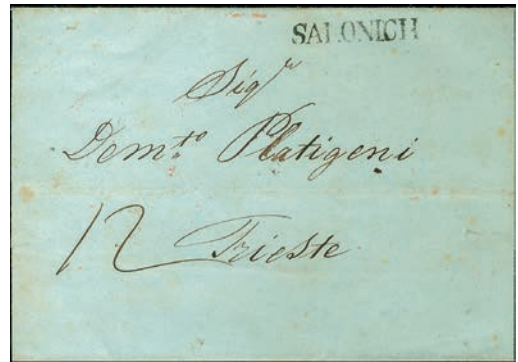 SALONICH
Sigr
Demto Platigeni
12 Trieste